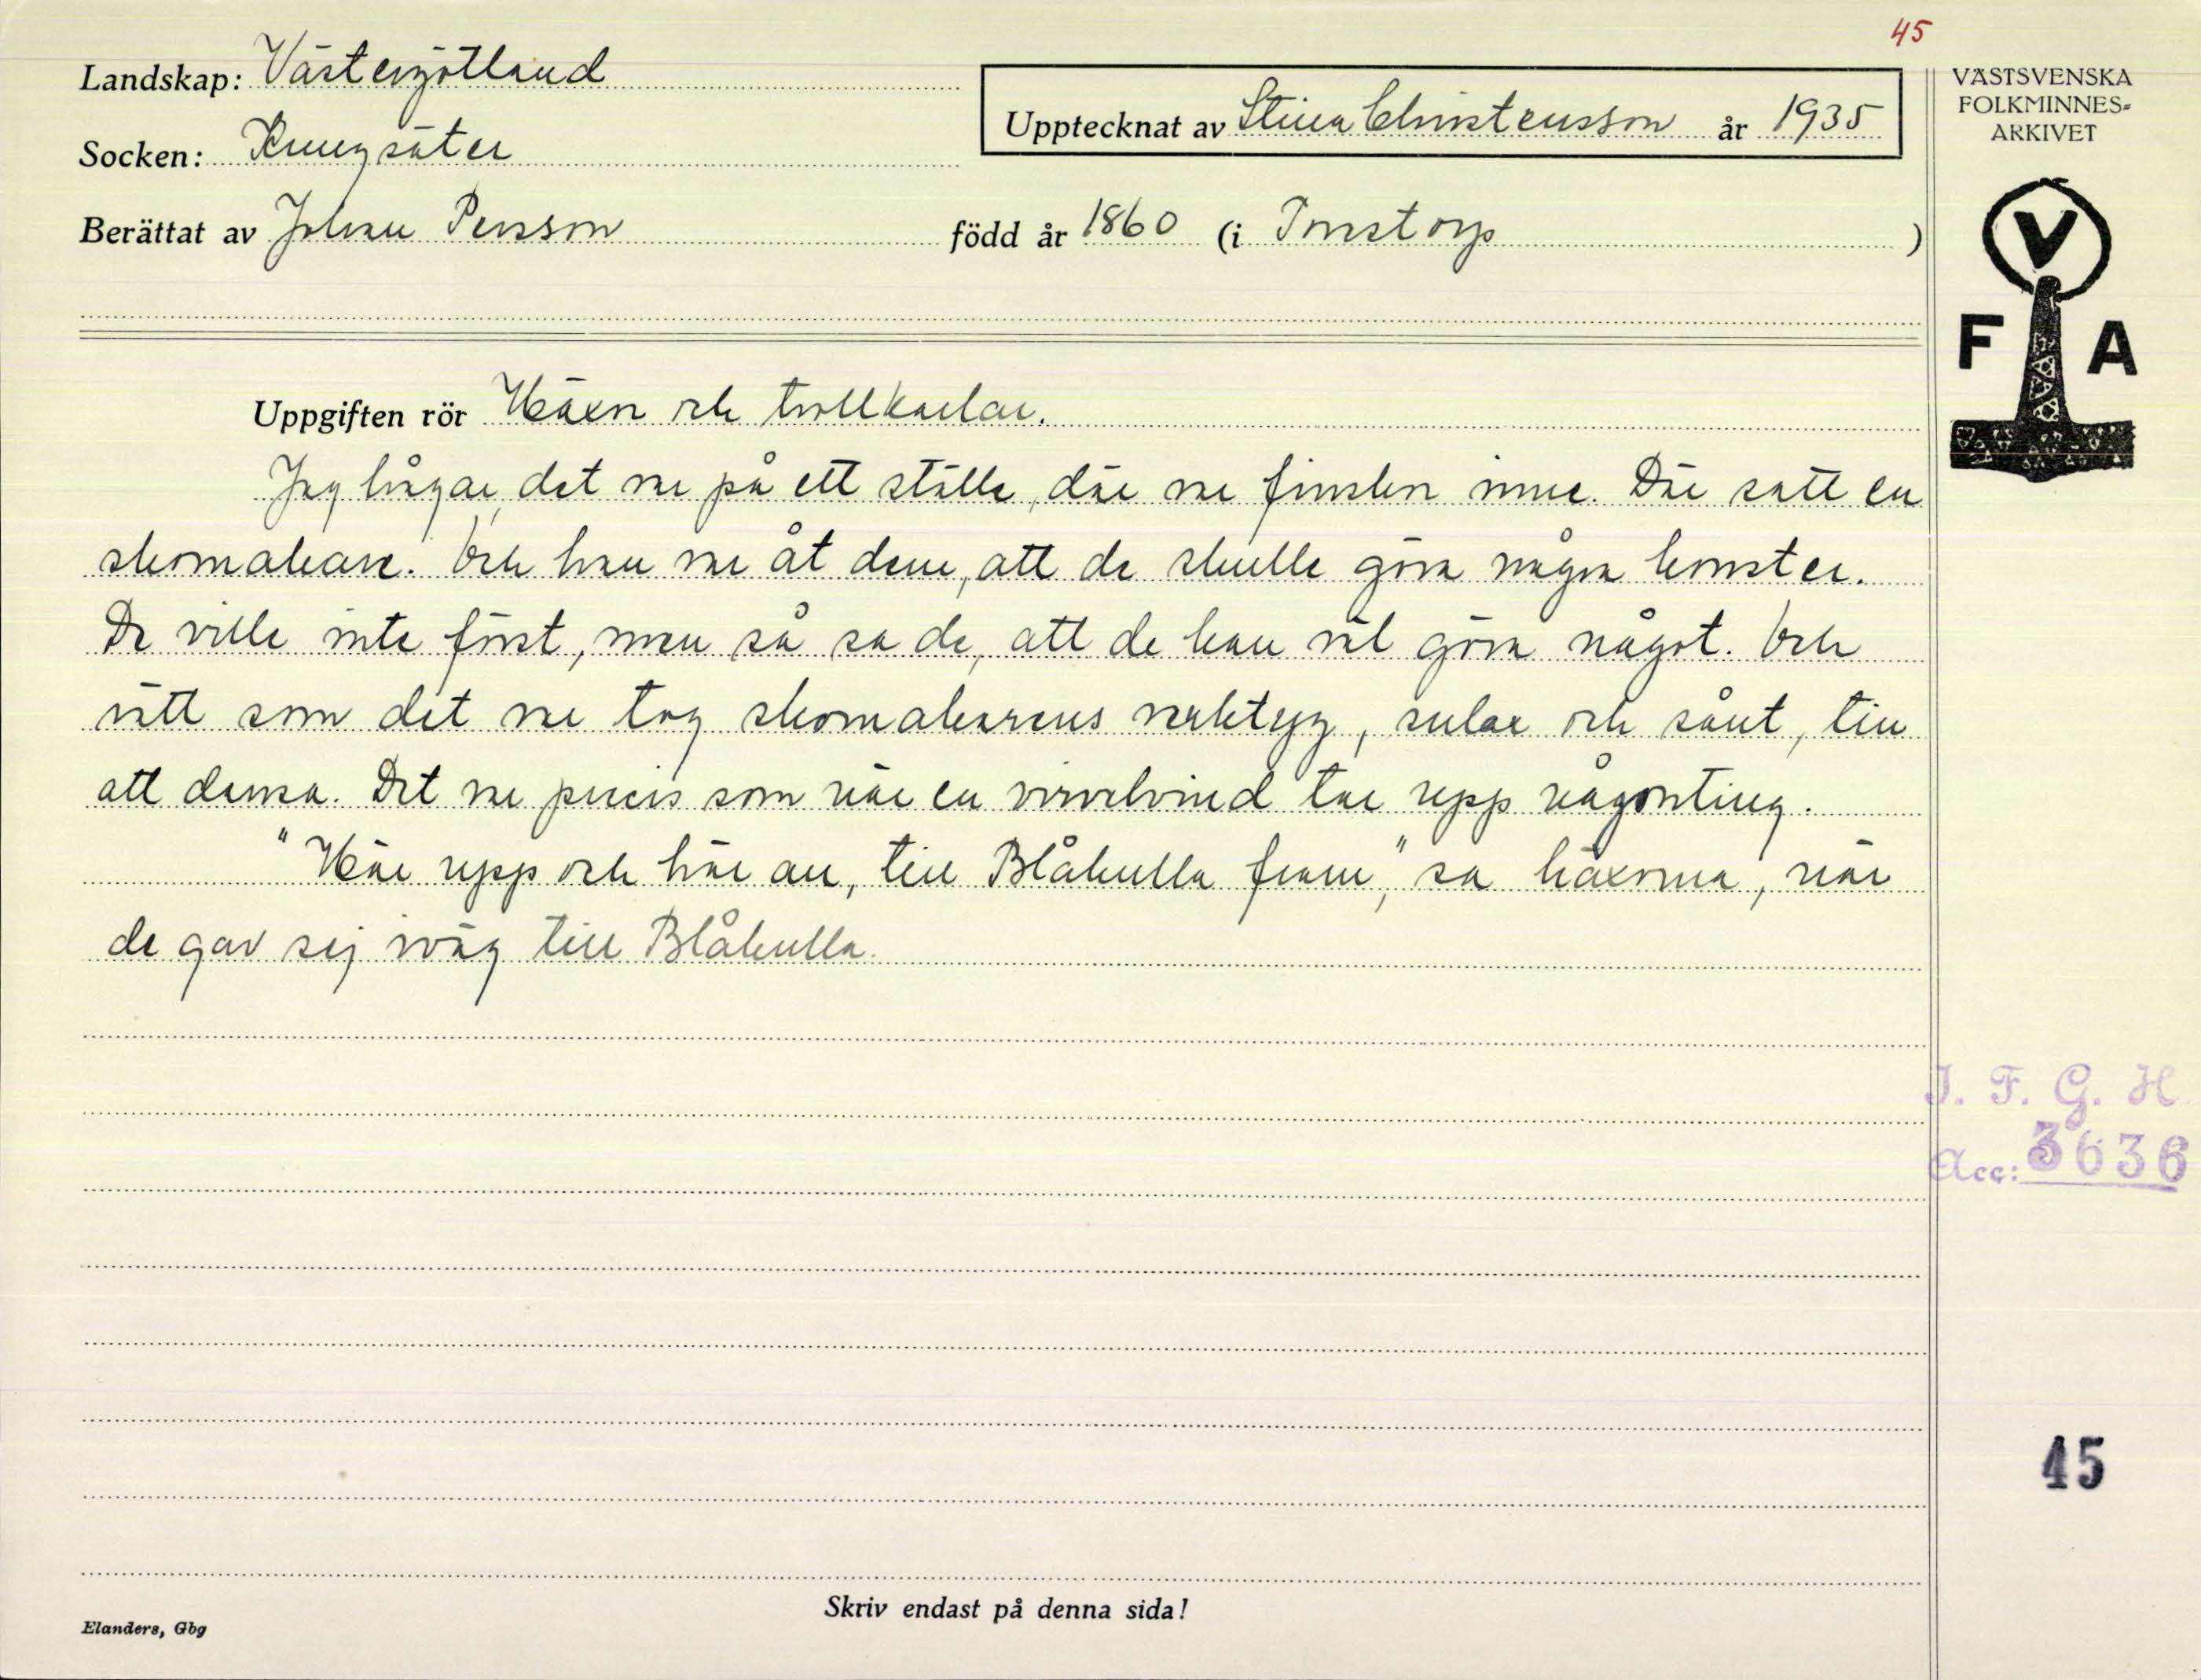 45
Landskap: Västergötland
Socken: Kungsäter
Berättat av Johan Persson
Upptecknat av Stina Christensson år 1935
född år 1860 (i Torstorp )
VÄSTSVENSKA
FOLKMINNES-
ARKIVET
V
F A
Uppgiften rör Häxor och trollkarlar.
Jag hågar, det va på ett ställe, där va finskor inne. Där satt en
skomakare. Och han va åt dem, att de skulle göra några konster.
De ville inte först, men så sa de, att de kan väl göra något. Och
rätt som det va tog skomakarens verktyg, sular och sånt, till
att dansa. Det va precis som när en virvelvind tar upp någonting.
"Här upp och här an, till Blåkulla fram," sa häxorna, när
de gav sej iväg till Blåkulla.
I. F. G. H
Acc: 3636
45
Skriv endast på denna sida!
Elanders, Gbg